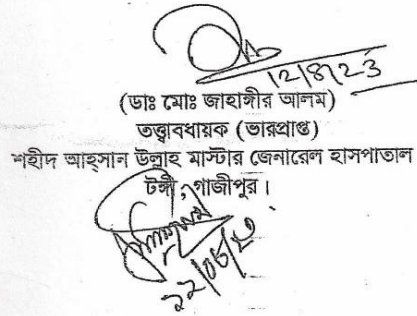 12/8/23
(ডাঃ মোঃ জাহাঙ্গীর আলম)
তত্ত্বাবধায়ক (ভারপ্রাপ্ত)
শহীদ আহ্‌সান উল্লাহ মাস্টার জেনারেল হাসপাতাল
টঙ্গী, গাজীপুর।